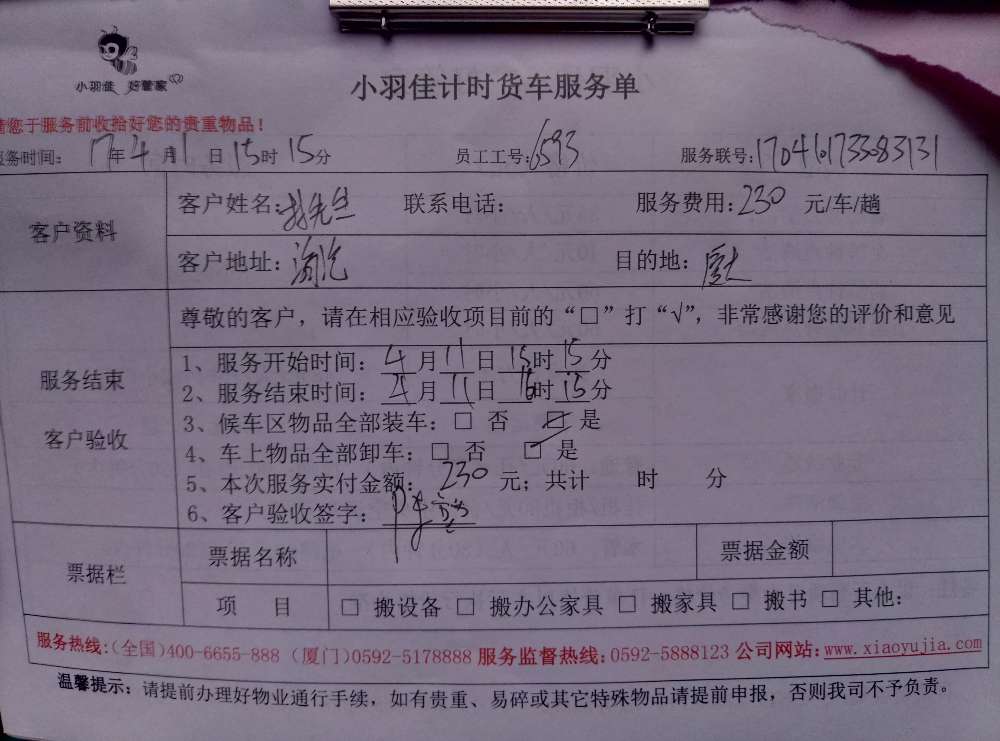 小羽佳 好管家
小羽佳计时货车服务单
请您于服务前收拾好您的贵重物品！
服务时间： 17年4月11日15时15分 员工工号：6593 服务联号：
客户资料
客户姓名： 先生 联系电话： 服务费用：230 元/车/趟
客户地址： 目的地：厦大
服务结束
客户验收
尊敬的客户，请在相应验收项目前的“□”打“√”，非常感谢您的评价和意见
1、服务开始时间：4月11日15时15分
2、服务结束时间：4月11日16时15分
3、候车区物品全部装车：□ 否 □ 是
4、车上物品全部卸车：□ 否 □ 是
5、本次服务实付金额： 230 元；共计 时 分
6、客户验收签字：
票据栏
票据名称 票据金额
项 目 □ 搬设备 □ 搬办公家具 □ 搬家具 □ 搬书 □ 其他：
服务热线：(全国)400-6655-888 (厦门)0592-5178888 服务监督热线：0592-5888123 公司网站：www.xiaoyujia.com
温馨提示：请提前办理好物业通行手续，如有贵重、易碎或其它特殊物品请提前申报，否则我司不予负责。